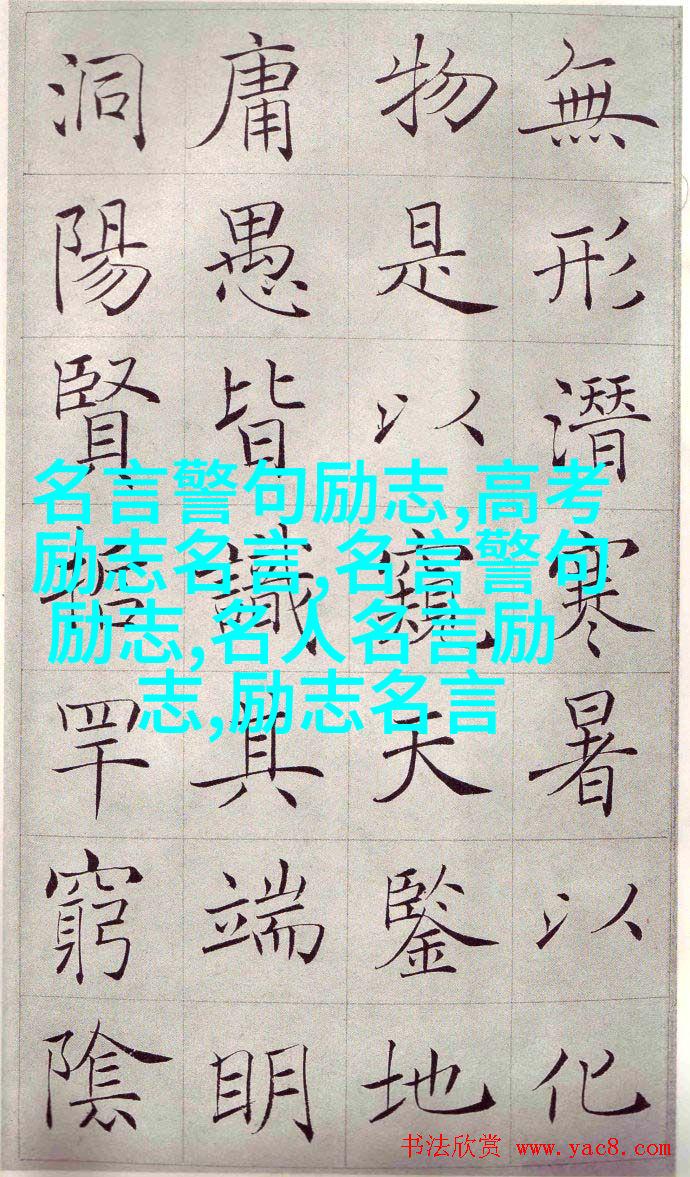 無形潛寒暑以化
物是以窺天鑒地
庸愚皆識其端眀
洞陽賢哲罕窮陰
名言警句励志,高考
励志名言,名言警句
励志,名人名言励
志,励志名言
书法欣赏 www.yac8.com